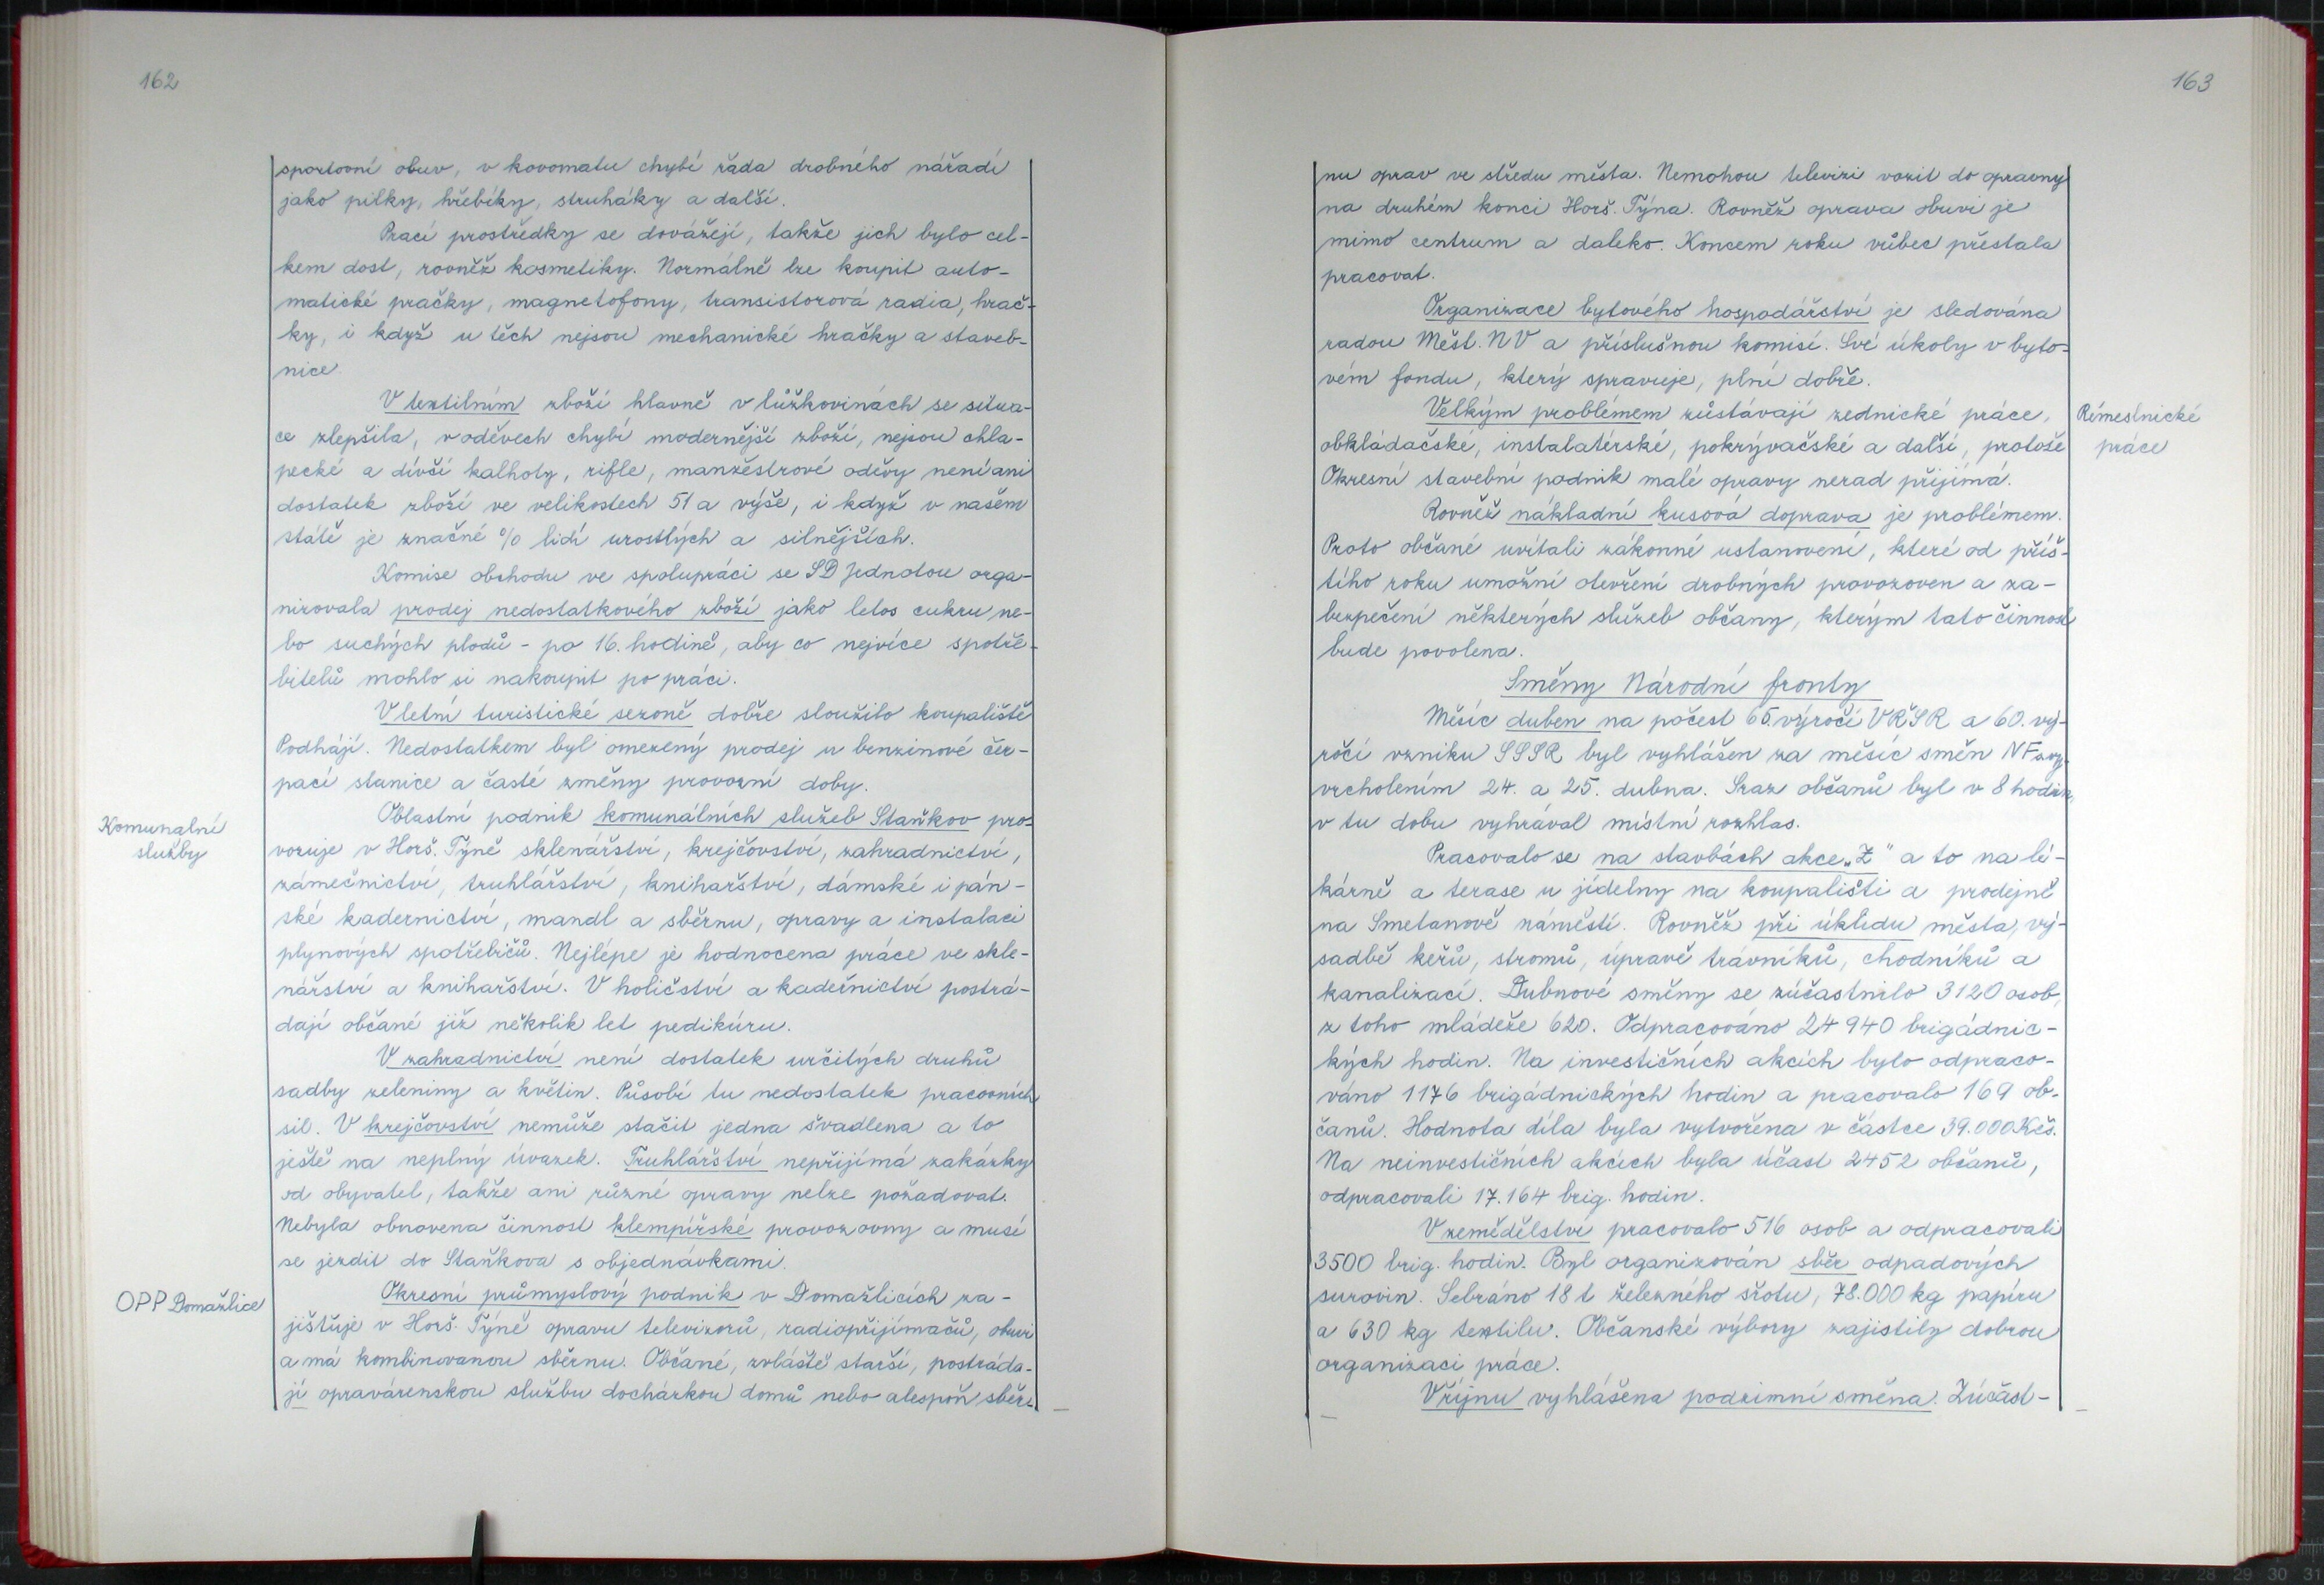 162
sportovní obuv, v kovomatu chybí řada drobného nářadí
jako pilky, hřebíky, struháky a další.
Prací prostředky se dovážejí, takže jich bylo cel-
kem dost, rovněž kosmetiky. Normálně lze koupit auto-
matické pračky, magnetofony, transistorová radia, hrač-
ky, i když u těch nejsou mechanické hračky a staveb-
nice.
V textilním zboží hlavně v lůžkovinách se situa-
ce zlepšila, v oděvech chybí modernější zboží, nejsou chla-
pecké a dívčí kalhoty, rifle, manžestrové oděvy není ani
dostatek zboží ve velikostech 51 a výše, i když v našem
státě je značné % lidí urostlých a silnějších.
Komise obchodu ve spolupráci se SD Jednotou orga-
nizovala prodej nedostatkového zboží jako letos cukru ne-
bo suchých plodů - po 16. hodině, aby co nejvíce spotře-
bitelů mohlo si nakoupit po práci.
V letní turistické sezoně dobře sloužilo koupaliště
Podhájí. Nedostatkem byl omezený prodej u benzinové čer-
pací stanice a časté změny provozní doby.
Komunalní
služby
Oblastní podnik komunálních služeb Staňkov pro-
vozuje v Horš. Týně sklenářství, krejčovství, zahradnictví,
zámečnictví, truhlářství, knihařství, dámské i pán-
ské kadernictví, mandl a sběrnu, opravy a instalaci
plynových spotřebičů. Nejlépe je hodnocena práce ve skle-
nářství a knihařství. V holičství a kadeřnictví postrá-
dají občané již několik let pedikúru.
V zahradnictví není dostatek určitých druhů
sadby zeleniny a květin. Působí tu nedostatek pracovních
sil. V krejčovství nemůže stačit jedna švadlena a to
ještě na neplný úvazek. Truhlářství nepřijímá zakázky
od obyvatel, takže ani různé opravy nelze požadovat.
Nebyla obnovena činnost klempířské provozovny a musí
se jezdit do Staňkova s objednávkami.
OPP Domažlice
Okresní průmyslový podnik v Domažlicích za-
jišťuje v Horš. Týně opravu televizorů, radiopřijímačů, obuvi
a má kombinovanou sběrnu. Občané, zvláště starší, postráda-
jí opravárenskou službu docházkou domů nebo alespoň sběr-
163
nu oprav ve středu města. Nemohou televizi vozit do opravny
na druhém konci Horš. Týna. Rovněž oprava obuvi je
mimo centrum a daleko. Koncem roku vůbec přestala
pracovat.
Organizace bytového hospodářství je sledována
radou Měst. NV a příslušnou komisí. Své úkoly v byto-
vém fondu, který spravuje, plní dobře.
Velkým problémem zůstávají zednické práce,
Řemeslnické
práce
obkládačské, instalatérské, pokrývačské a další, protože
Okresní stavební podnik malé opravy nerad přijímá.
Rovněž nákladní kusová doprava je problémem.
Proto občané uvítali zákonné ustanovení, které od příš-
tího roku umožní otevření drobných provozoven a za-
bezpečení některých služeb občany, kterým tato činnost
bude povolena.
Směny Národní fronty
Měsíc duben na počest 65. výročí VŘSR a 60. vý-
ročí vzniku SSSR byl vyhlášen za měsíc směn NF s vy-
vrcholením 24. a 25. dubna. Sraz občanů byl v 8 hodin,
v tu dobu vyhrával místní rozhlas.
Pracovalo se na stavbách akce „Z" a to na lé-
kárně a terase u jídelny na koupališti a prodejně
na Smetanově náměstí. Rovněž při úklidu města, vý-
sadbě keřů, stromů, úpravě trávníků, chodníků a
kanalizací. Dubnové směny se zúčastnilo 3120 osob,
z toho mládeže 620. Odpracováno 24 940 brigádnic-
kých hodin. Na investičních akcích bylo odpraco-
váno 1176 brigádnických hodin a pracovalo 169 ob-
čanů. Hodnota díla byla vytvořena v částce 39.000 Kčs.
Na neinvestičních akcích byla účast 2452 občanů,
odpracovali 17.164 brig. hodin.
V zemědělství pracovalo 516 osob a odpracovali
3500 brig. hodin. Byl organizován sběr odpadových
surovin. Sebráno 18 t železného šrotu, 78.000 kg papíru
a 630 kg textilu. Občanské výbory zajistily dobrou
organizaci práce.
V říjnu vyhlášena podzimní směna. Zúčast-